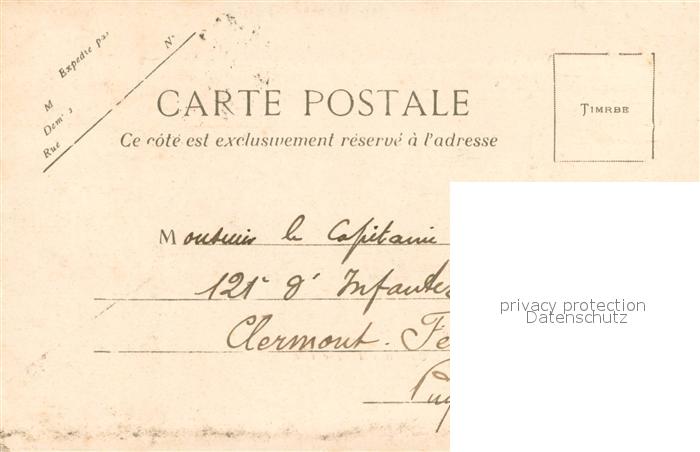 Expédié par
M
Rue
N°
CARTE POSTALE
Ce côté est exclusivement réservé à l'adresse
TIMRBE
Monsieur le Capitaine
121e d'Infanter
Clermont-Fe
Puy
privacy protection
Datenschutz